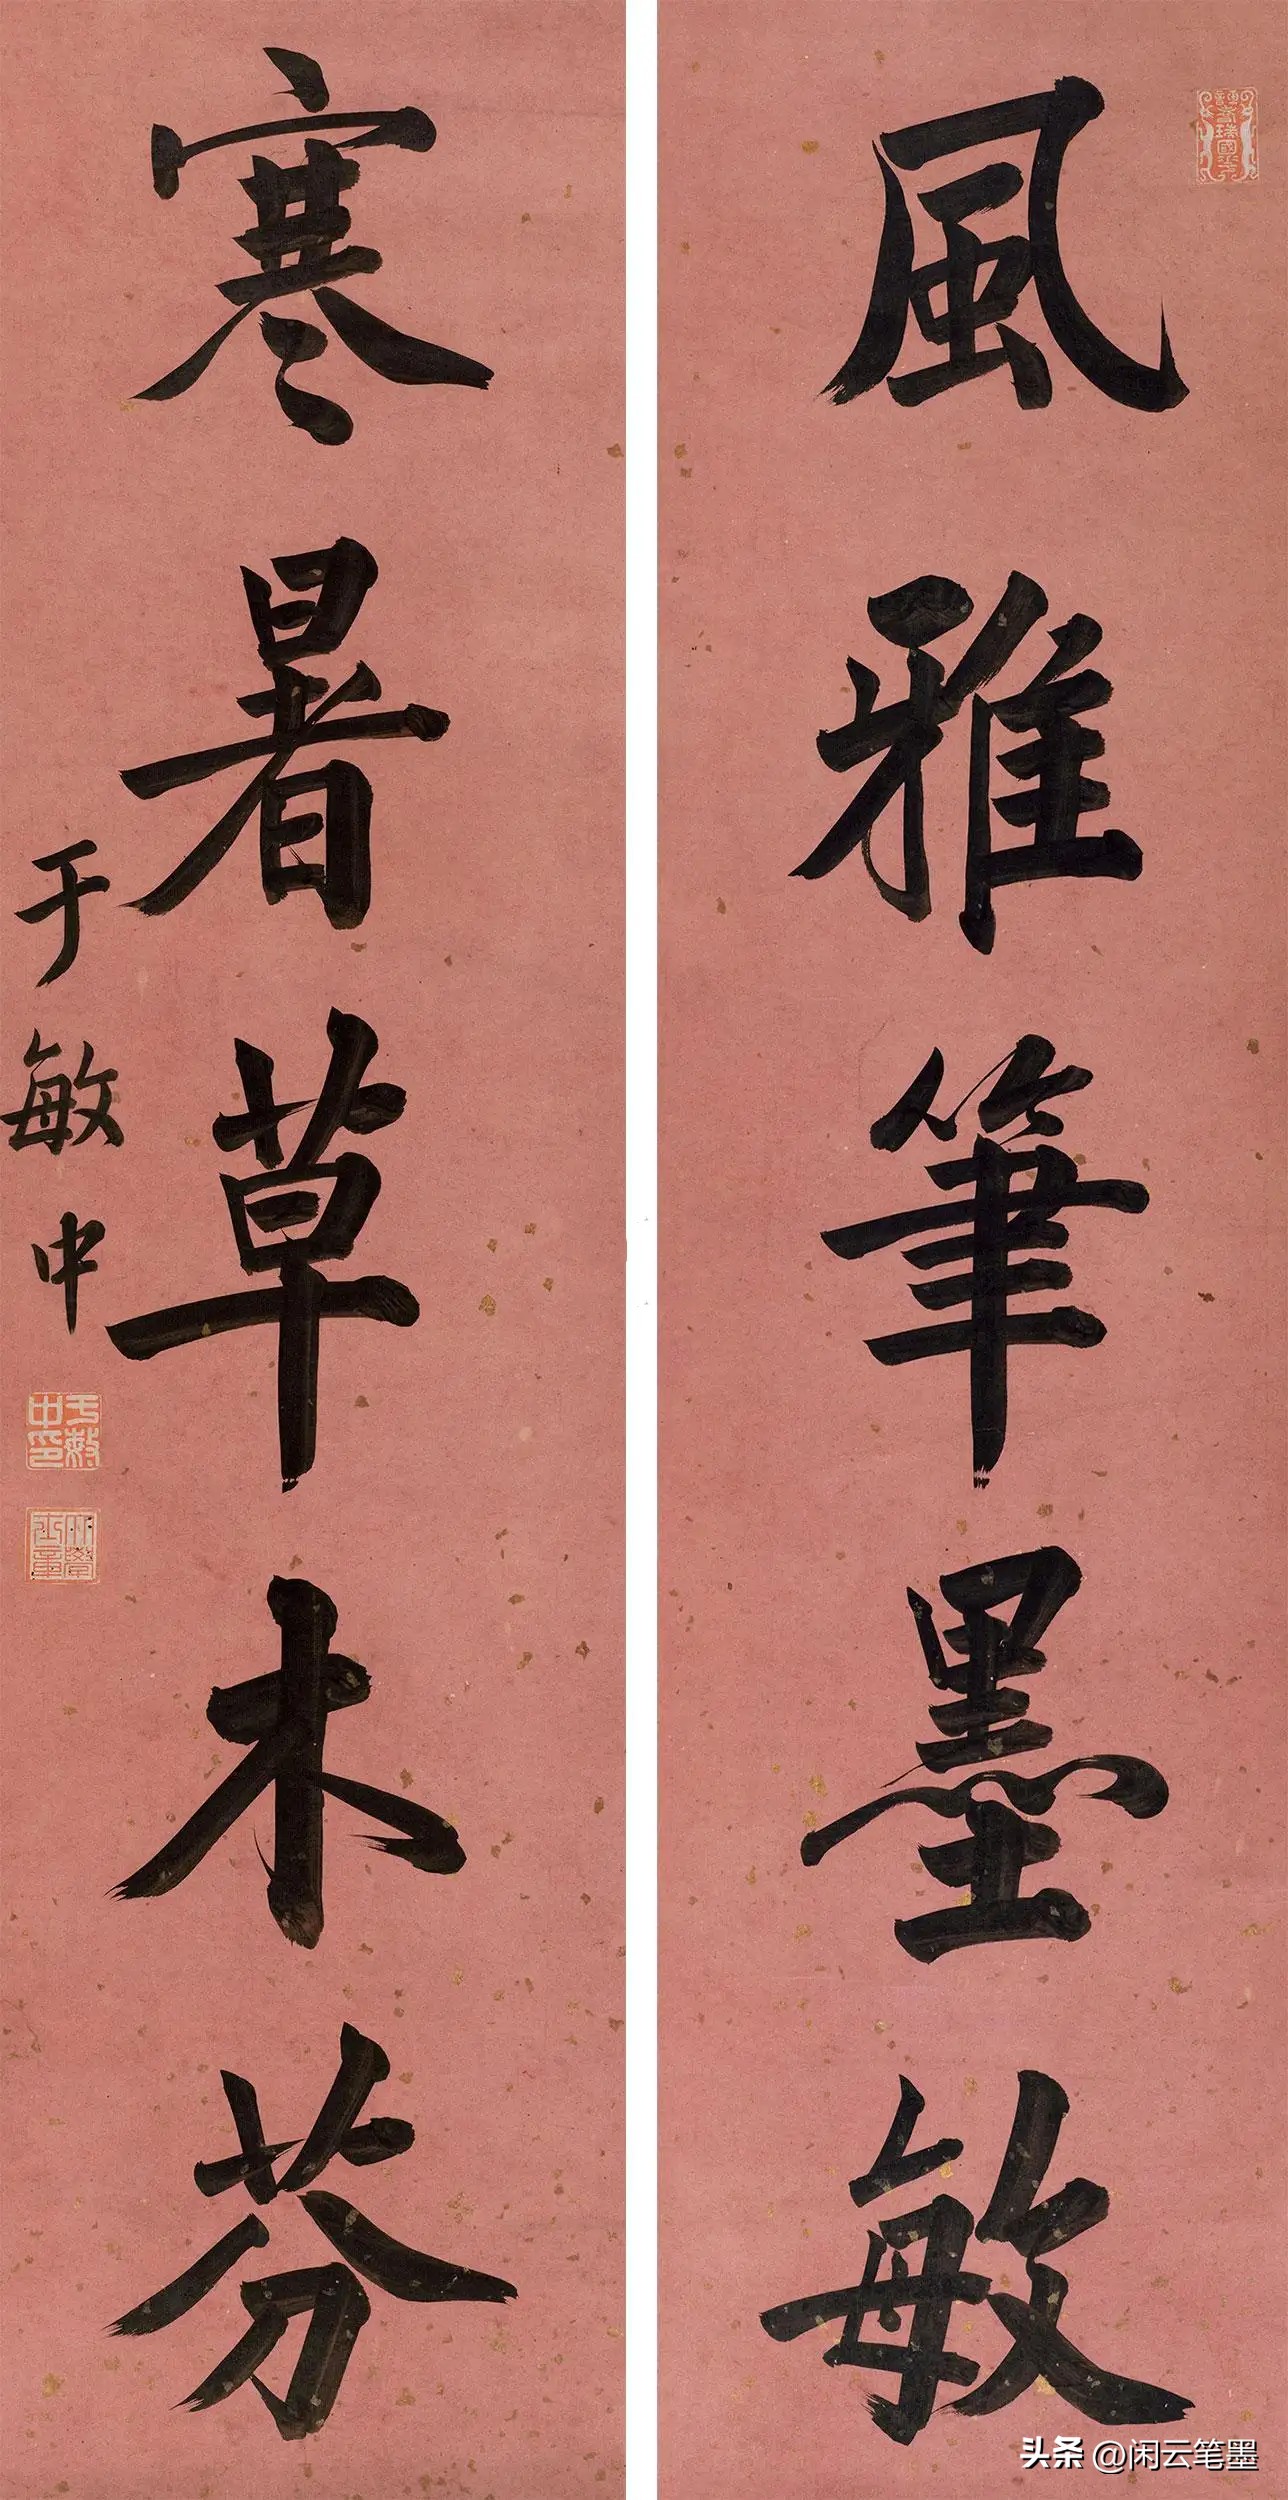 風雅筆墨敏
寒暑草木芬
于敏中
于敏中印
头条 @闲云笔墨